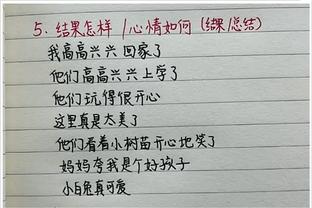 5. 结果怎样 / 心情如何 (结果/总结)
我高高兴兴回家了
他们高高兴兴上学了
他们玩得很开心
这里真是太美了
他们看着小树苗开心地笑了
妈妈夸我是个好孩子
小白兔真可爱